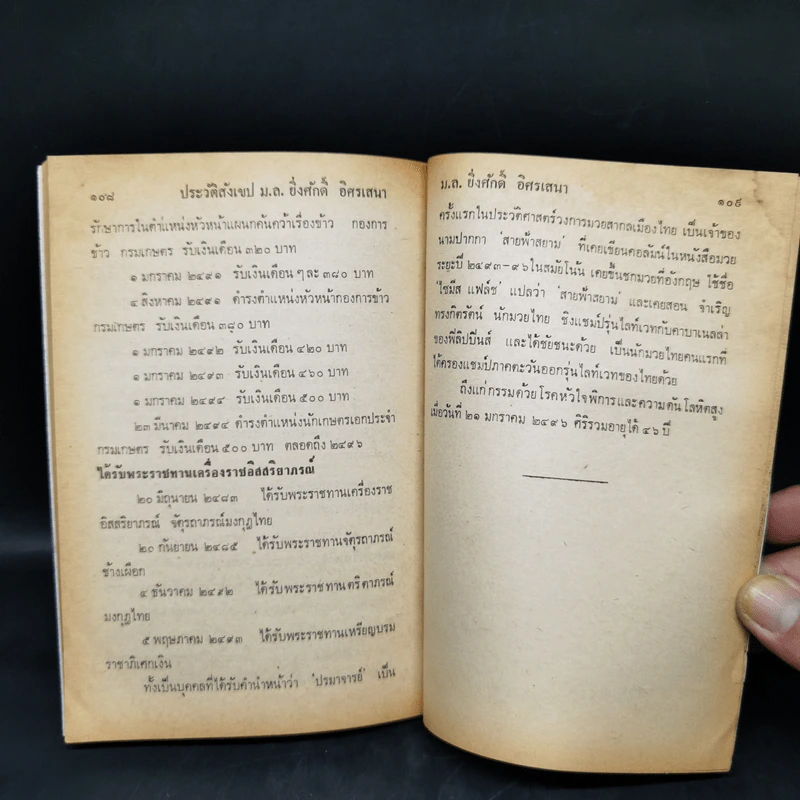 ๑๐๘ ประวัติสังเขป ม.ล. ยิ่งศักดิ์ อิศรเสนา
รักษาการในตำแหน่งหัวหน้าแผนกค้นคว้าเรื่องข้าว กองการ
ข้าว กรมเกษตร รับเงินเดือน ๓๒๐ บาท
๑ มกราคม ๒๔๙๑ รับเงินเดือน ๆ ละ ๓๘๐ บาท
๔ สิงหาคม ๒๔๙๑ ดำรงตำแหน่งหัวหน้ากองการข้าว
กรมเกษตร รับเงินเดือน ๓๘๐ บาท
๑ มกราคม ๒๔๙๒ รับเงินเดือน ๔๒๐ บาท
๑ มกราคม ๒๔๙๓ รับเงินเดือน ๔๖๐ บาท
๑ มกราคม ๒๔๙๔ รับเงินเดือน ๕๐๐ บาท
๒๓ มีนาคม ๒๔๙๔ ดำรงตำแหน่งนักเกษตรเอกประจำ
กรมเกษตร รับเงินเดือน ๕๐๐ บาท ตลอดถึง ๒๔๙๖
ได้รับพระราชทานเครื่องราชอิสสริยาภรณ์
๒๐ มิถุนายน ๒๔๘๓ ได้รับพระราชทานเครื่องราช
อิสสริยาภรณ์ จัตุรถาภรณ์มงกุฎไทย
๒๐ กันยายน ๒๔๘๕ ได้รับพระราชทานจัตุรถาภรณ์
ช้างเผือก
๔ ธันวาคม ๒๔๙๒ ได้รับพระราชทานตริตาภรณ์
มงกุฎไทย
๕ พฤษภาคม ๒๔๙๓ ได้รับพระราชทานเหรียญบรม
ราชาภิเศกเงิน
ทั้งเป็นบุคคลที่ได้รับคำนำหน้าว่า ‘ปรมาจารย์’ เป็น
ม.ล. ยิ่งศักดิ์ อิศรเสนา ๑๐๙
ครั้งแรกในประวัติศาสตร์วงการมวยสากลเมืองไทย เป็นเจ้าของ
นามปากกา ‘สายฟ้าสยาม’ ที่เคยเขียนคอลัมน์ในหนังสือมวย
ระยะปี ๒๔๙๓-๙๖ ในสมัยโน้น เคยขึ้นชกมวยที่อังกฤษ ใช้ชื่อ
‘ไซมีส แฟล์ช’ แปลว่า ‘สายฟ้าสยาม’ และเคยสอน จำเริญ
ทรงกิตรัตน์ นักมวยไทย ชิงแชมป์รุ่นไลท์เวทกับคาบาเนลล่า
ของฟิลิปปินส์ และได้ชัยชนะด้วย เป็นนักมวยไทยคนแรกที่
ได้ครองแชมป์ภาคตะวันออกรุ่นไลท์เวทของไทยด้วย
ถึงแก่กรรมด้วยโรคหัวใจพิการและความดันโลหิตสูง
เมื่อวันที่ ๒๑ มกราคม ๒๔๙๖ ศิริรวมอายุได้ ๔๖ ปี